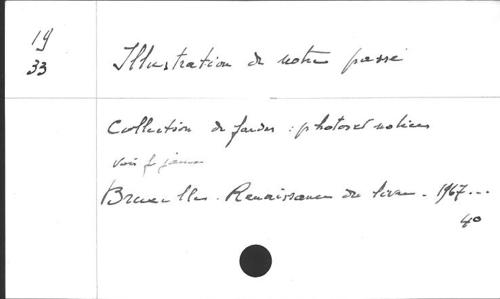 19
33
Illustration de notre passé
Collection de fardes : photos et notices
voir f. jaunes
Bruxelles. Renaissance du livre. 1967...
4°